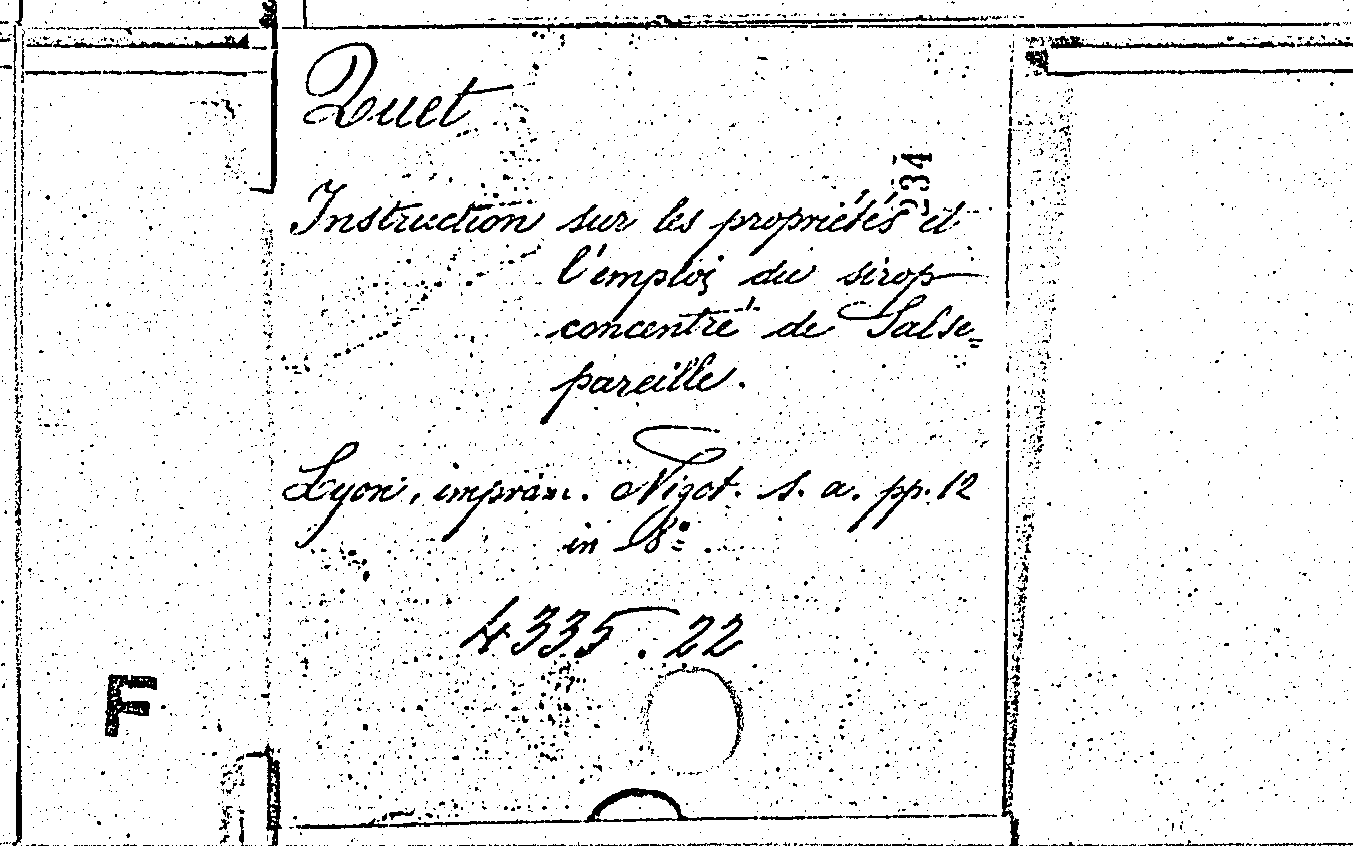 Quet
934
Instruction sur les propriétés et
l'emploi du sirop
concentré de Salse=
pareille.
Lyon, imprim. Nigot. s. a. pp. 12
in 8º.
4335.22
F